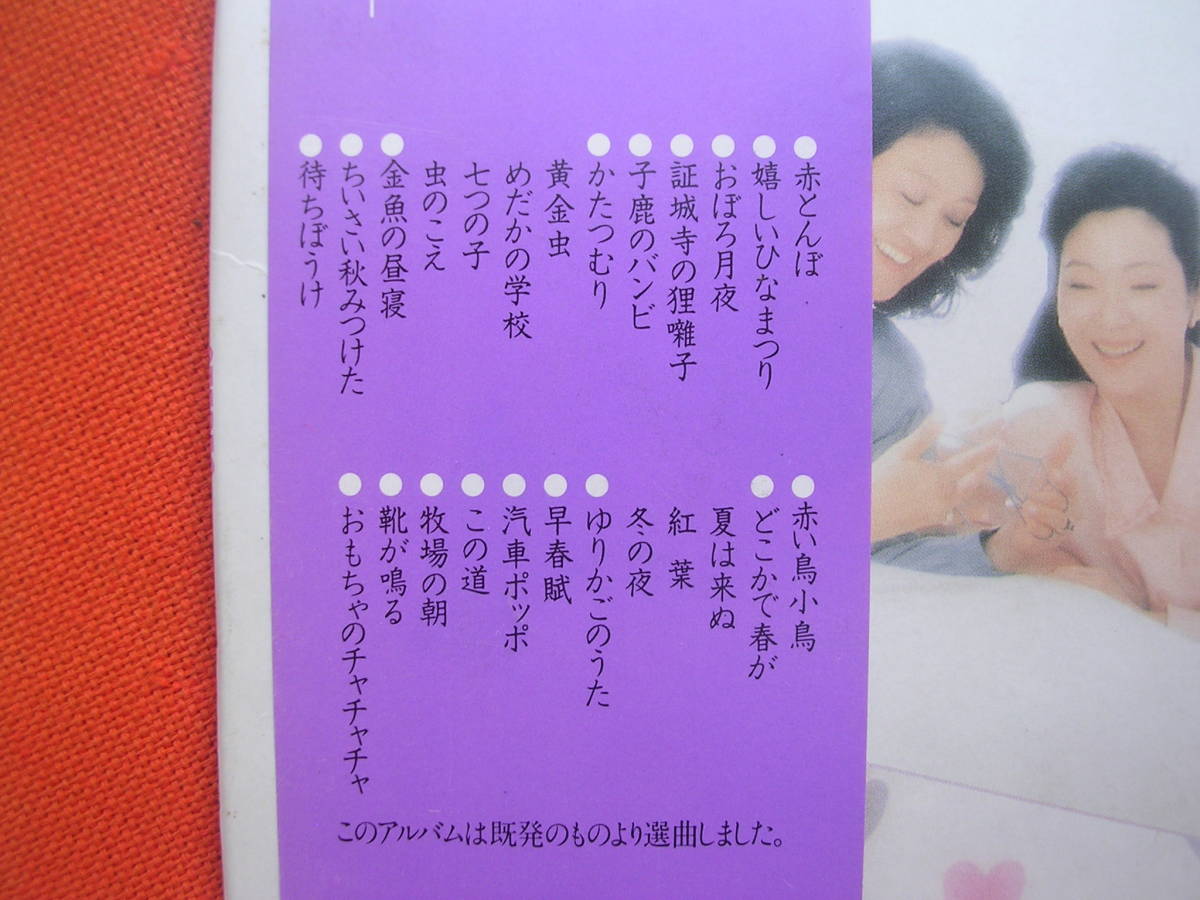 ●赤とんぼ
●嬉しいひなまつり
●おぼろ月夜
●証城寺の狸囃子
●子鹿のバンビ
●かたつむり
黄金虫
めだかの学校
七つの子
虫のこえ
●金魚の昼寝
●ちいさい秋みつけた
●待ちぼうけ
●赤い鳥小鳥
●どこかで春が
夏は来ぬ
紅葉
冬の夜
●ゆりかごのうた
●早春賦
●汽車ポッポ
●この道
●牧場の朝
●靴が鳴る
●おもちゃのチャチャチャ
このアルバムは既発のものより選曲しました。